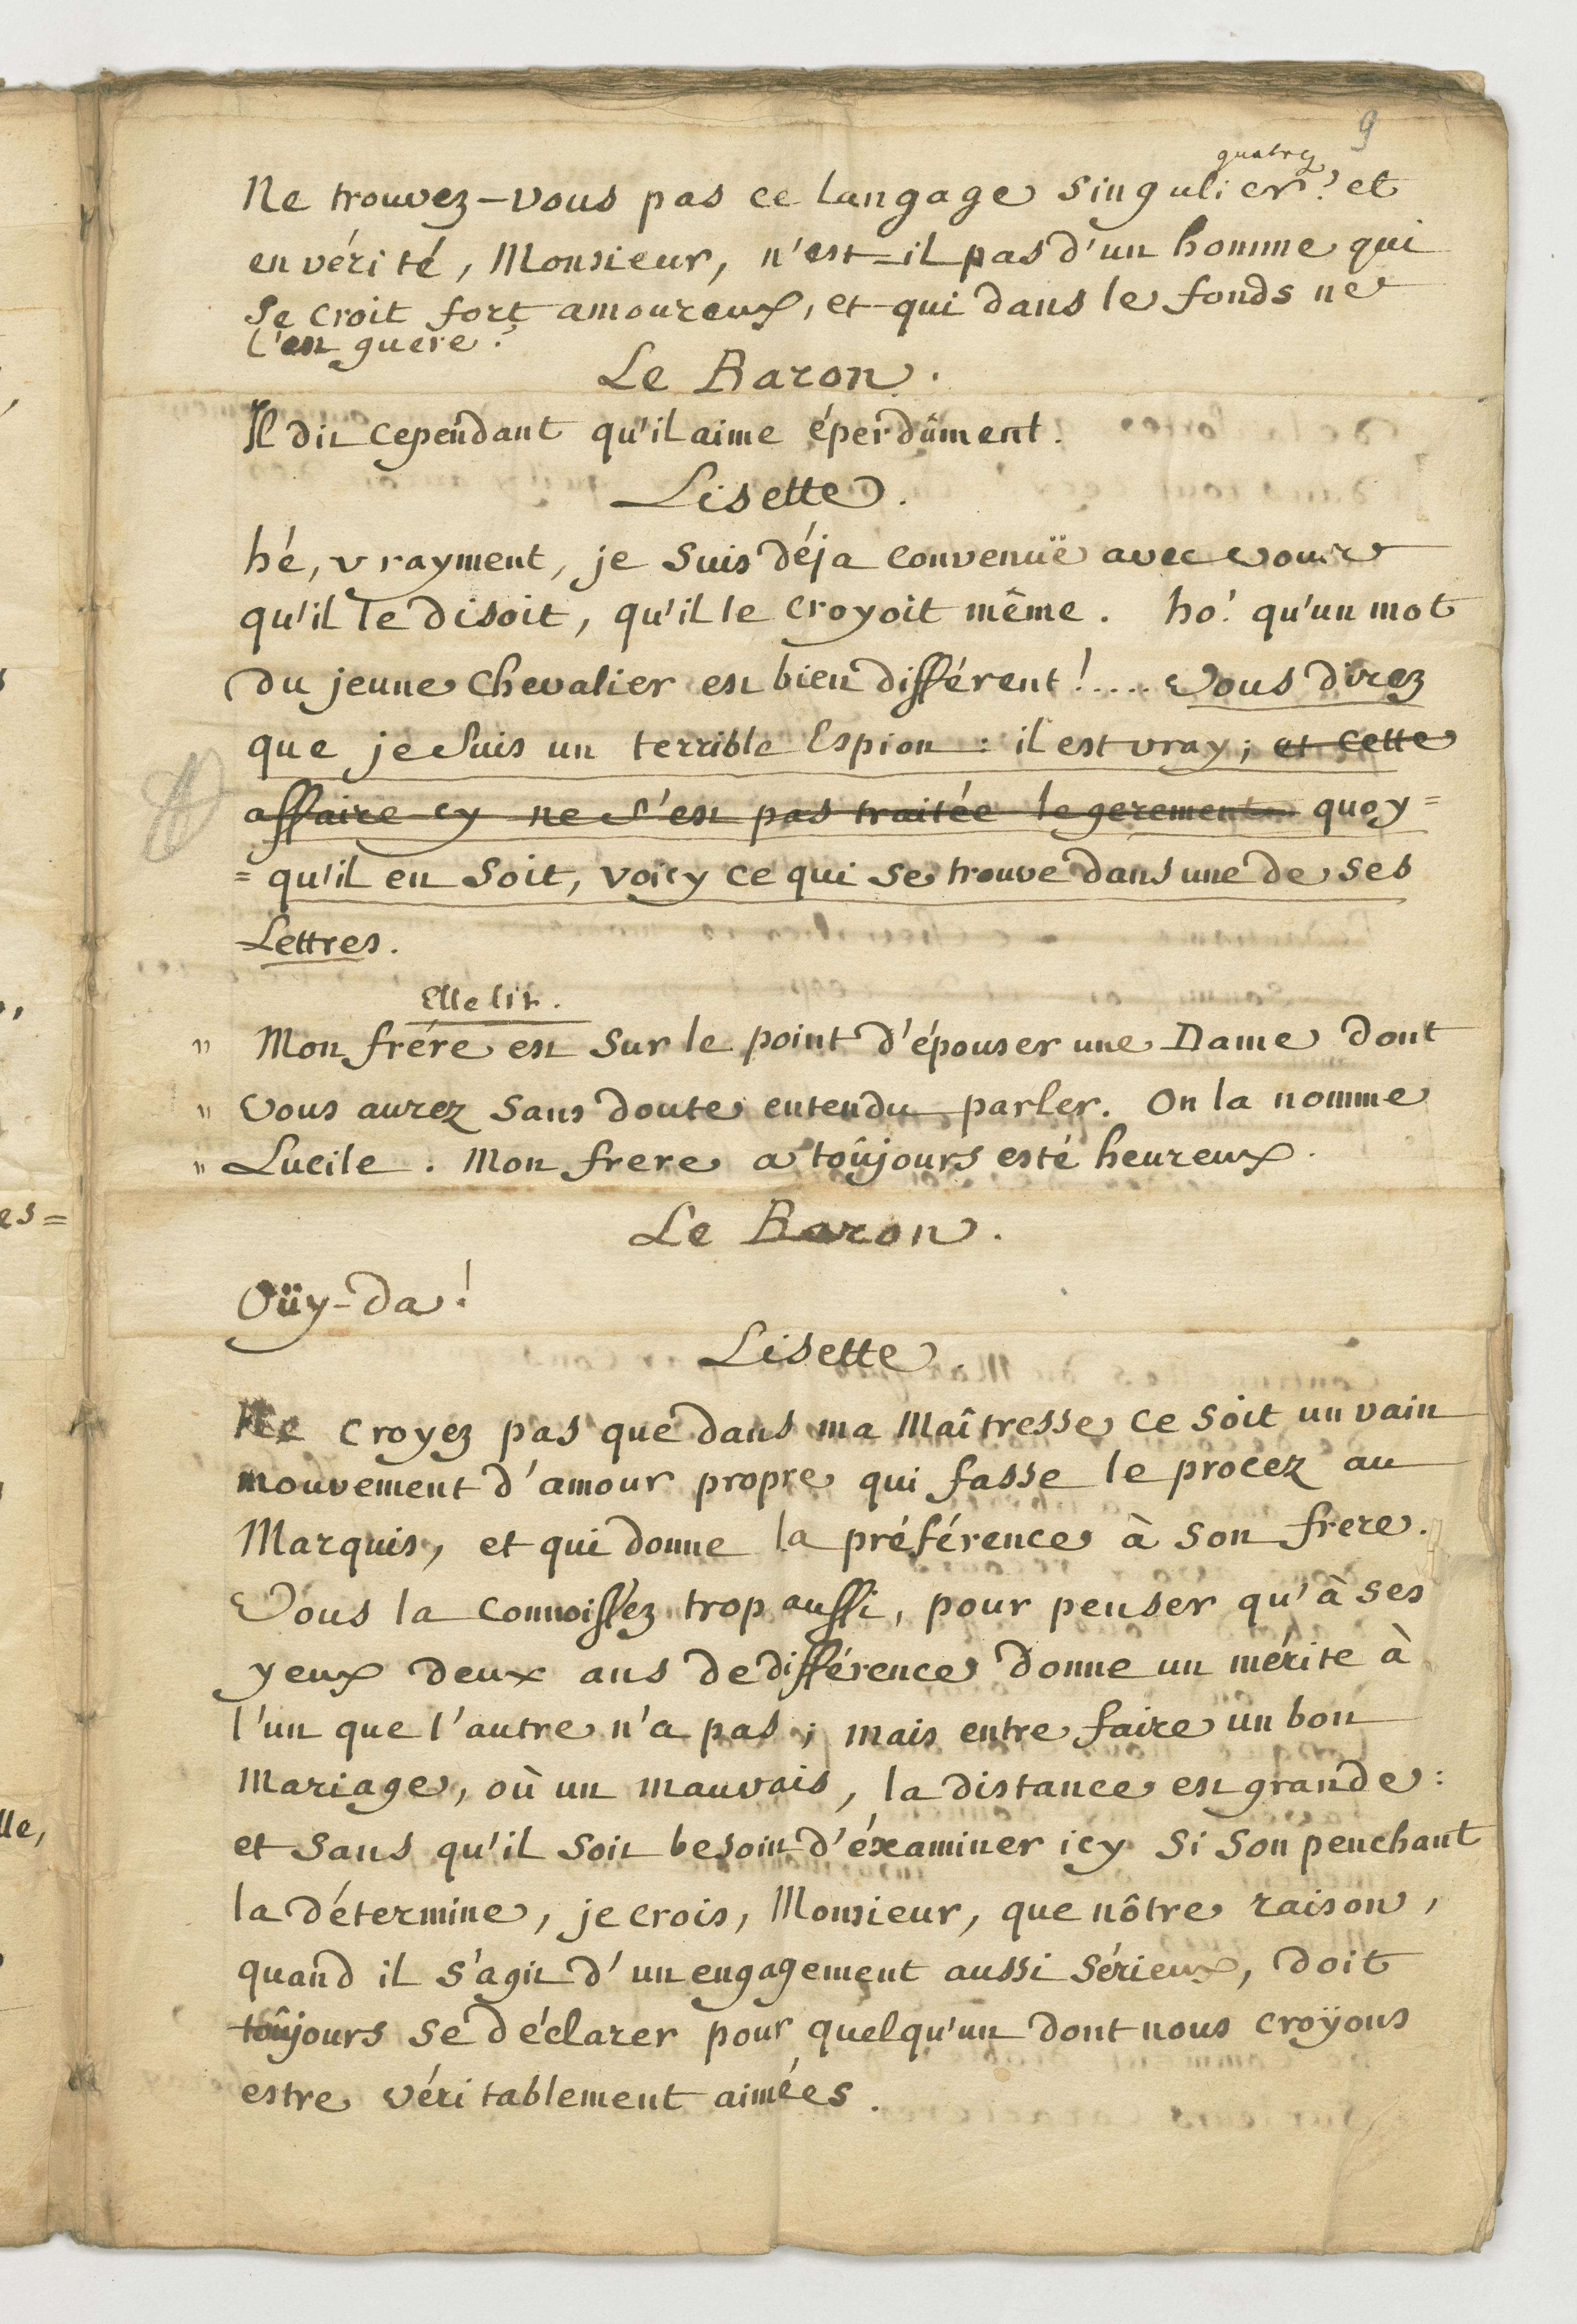 9
quatre
Ne trouvez-vous pas ce langage singulier? et
en vérité, Monsieur, n'est-il pas d'un homme qui
se croit fort amoureux, et qui dans le fonds ne
l'est guere?
Le Baron.
Il dit cependant qu'il aime éperdûment.
Lisette.
hé, vrayment, je suis déja convenuë avec vous
qu'il le disoit, qu'il le croyoit même. ho! qu'un mot
du jeune Chevalier est bien différent!.... Vous direz
que je suis un terrible Espion : il est vray; et cette
affaire cy ne s'est pas traitée legerement quoy=
=qu'il en soit, voicy ce qui se trouve dans une de ses
Lettres.
Elle lit.
" Mon frére est sur le point d'épouser une Dame dont
" vous aurez sans doute entendu parler. On la nomme
" Lucile. Mon frere a toûjours esté heureux.
Le Baron.
Oüy-da!
Lisette.
Ne croyez pas que dans ma Maîtresse ce soit un vain
mouvement d'amour propre qui fasse le procez au
Marquis, et qui donne la préférence à son frere.
Vous la connoissez trop aussi, pour penser qu'à ses
yeux deux ans de différence donne un mérite à
l'un que l'autre n'a pas; mais entre faire un bon
Mariage, où un mauvais, la distance est grande:
et sans qu'il soit besoin d'éxaminer icy si son penchant
la détermine, je crois, Monsieur, que nôtre raison,
quand il s'agit d'un engagement aussi sérieux, doit
toûjours se déclarer pour quelqu'un dont nous croÿons
estre véritablement aimées.
es=
lle,